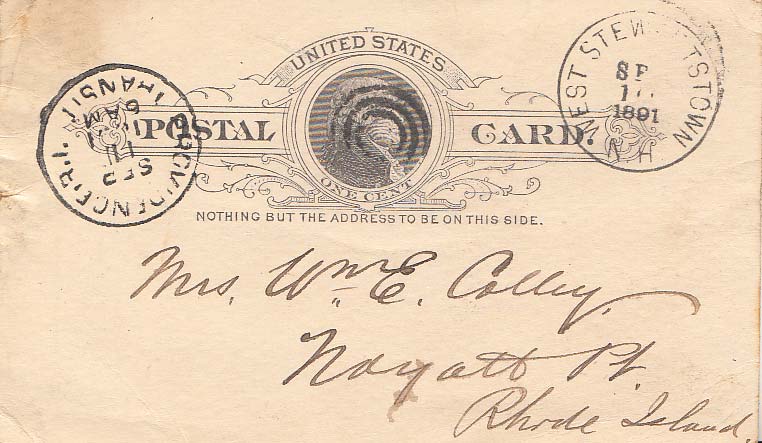 UNITED STATES
POSTAL CARD.
ONE CENT
NOTHING BUT THE ADDRESS TO BE ON THIS SIDE.
WEST STEW TSTOWN
1891
N H
PROVIDENCE, R.I.
SEP
11
6 AM
TRANSIT
Mrs. Wm E. Colley.
Nayatt Pt.
Rhode Island.